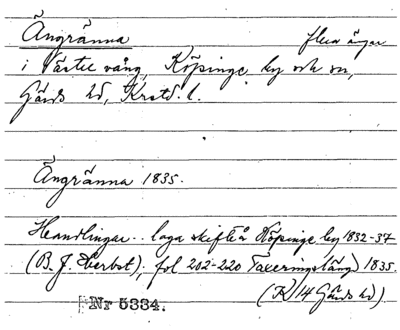 Ängränna flera ängar
i Västre vång, Köpinge by och sn,
Gärds hd, Krstd. l.
Ängränna 1835.
Handlingar.. laga skifte å Köpinge by 1832-37
(B. J. Herbst), fol 202-220 Taxeringslängd 1835.
(K 14 Gärds hd).
Nr 5334.